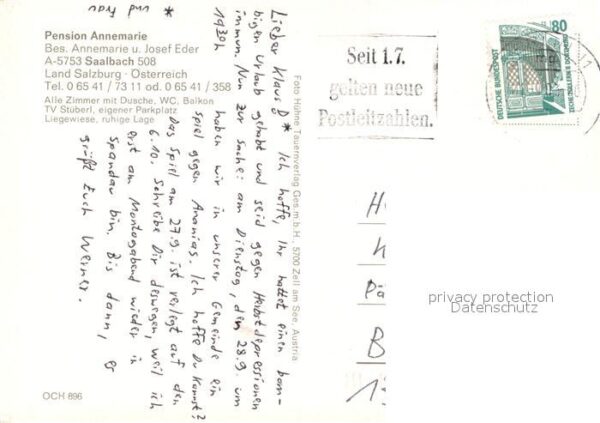 Pension Annemarie
Bes. Annemarie u. Josef Eder
A-5753 Saalbach 508
Land Salzburg · Österreich
Tel. 0 65 41 / 73 11 od. 0 65 41 / 358
Alle Zimmer mit Dusche, WC, Balkon
TV Stüberl, eigener Parkplatz
Liegewiese, ruhige Lage
* und Frau
Lieber Klaus D * Ich hoffe, Ihr hattet einen bom-
bigen Urlaub gehabt und seid gegen Herbstdepressionen
immun. Nun zur Sache: am Dienstag, den 28.9. um
1930h haben wir in unserer Gemeinde ein
Spiel gegen Ananias. Ich hoffe Du kannst?
Das Spiel am 27.9. ist verlegt auf den
6.10. Schreibe Dir deswegen, weil ich
erst am Montagabend wieder in
Spandau bin. Bis dann, es
grüßt Euch Werner.
OCH 896
Foto Hühne Tauernverlag Ges.m.b.H. 5700 Zell am See, Austria
Seit 1.7.
gelten neue
Postleitzahlen.
80
DEUTSCHE BUNDESPOST
ZECHE ZOLLERN II DORTMUND
H
K
Pä
B
1
privacy protection
Datenschutz